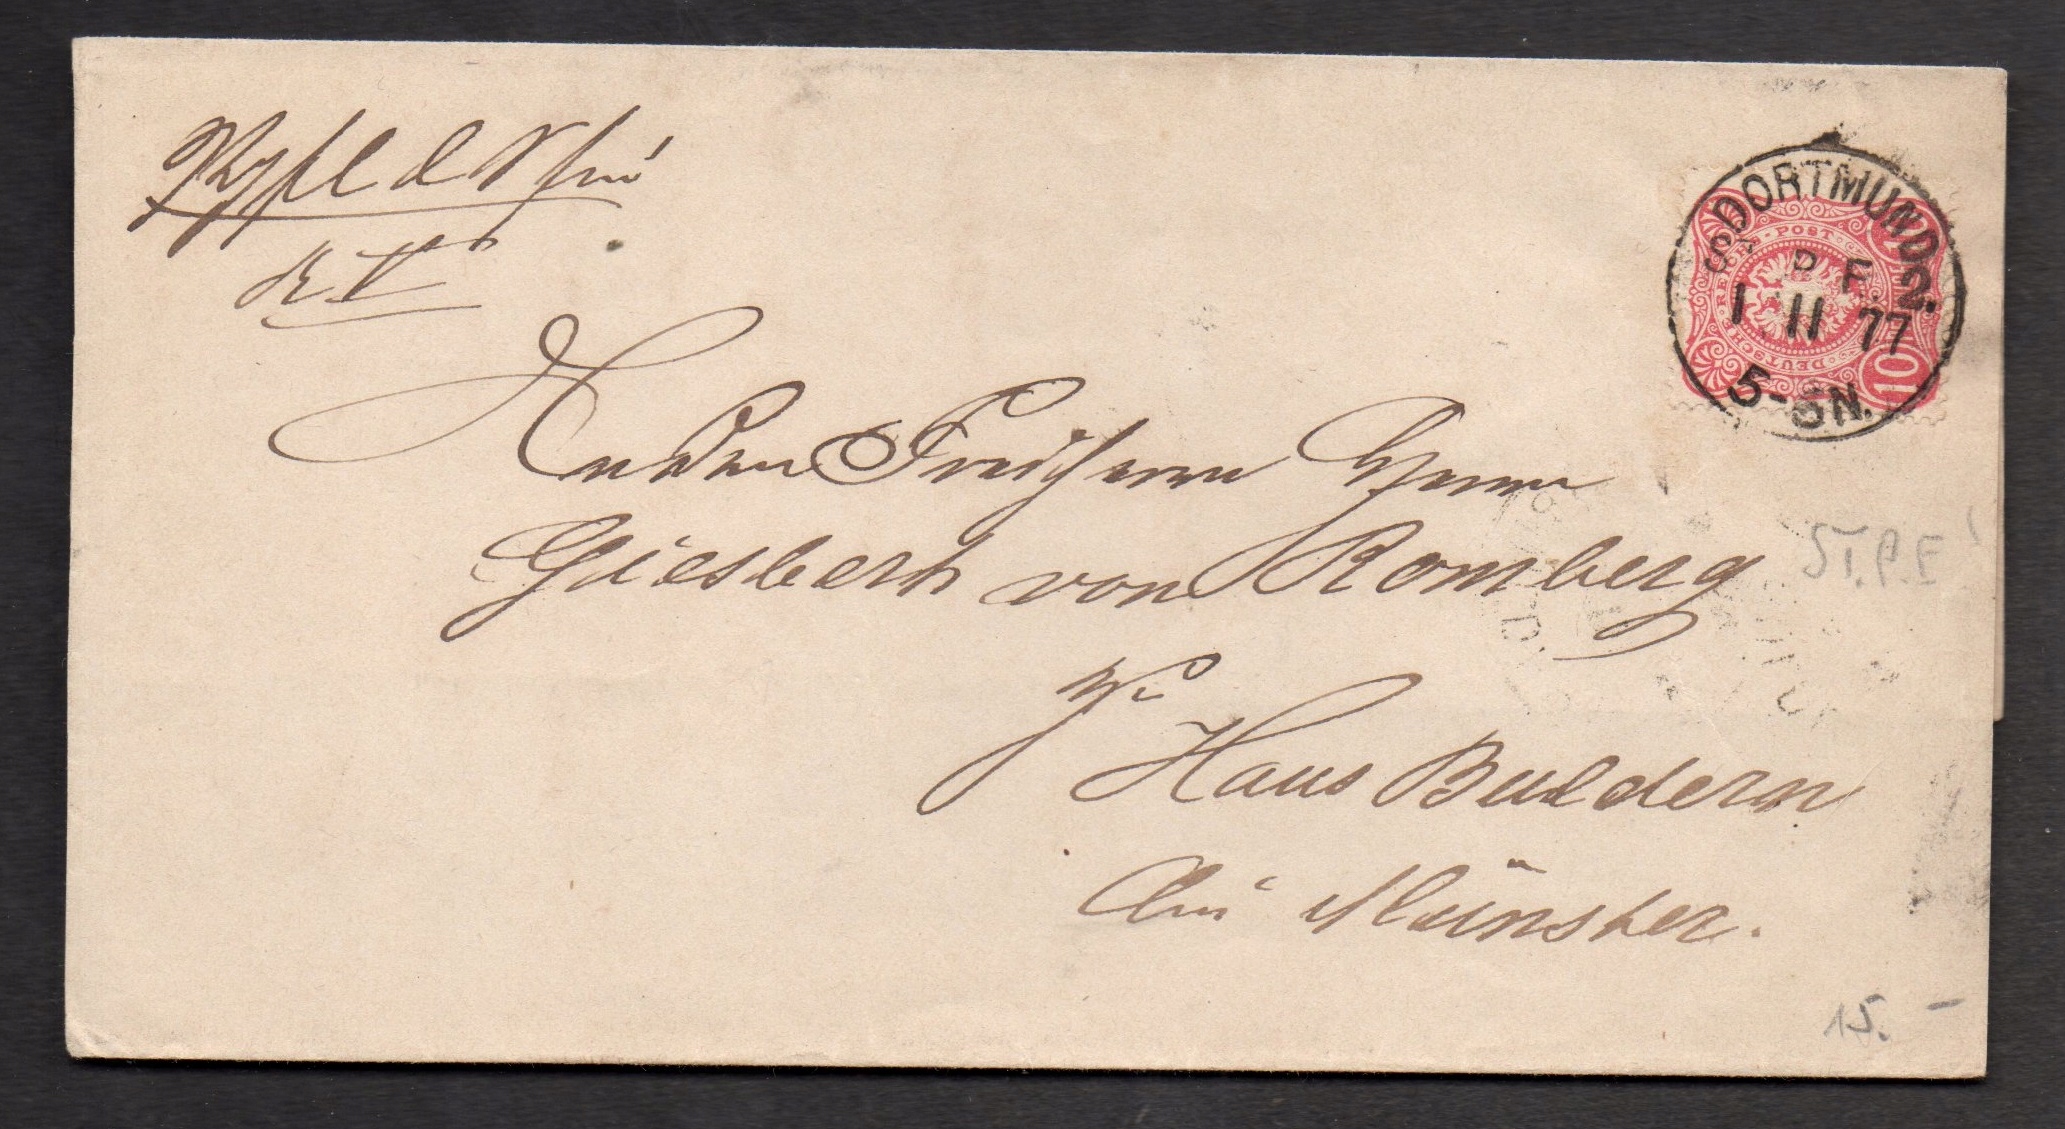 DORTMUND 2.
P.F.
1 11 77
5-6N.
DEUTSCHE REICHS-POST
10
An den Freiherrn Herrn
Giesbert von Romberg
zu
Haus Buldern
bei Münster.
ST.P.E
15. –